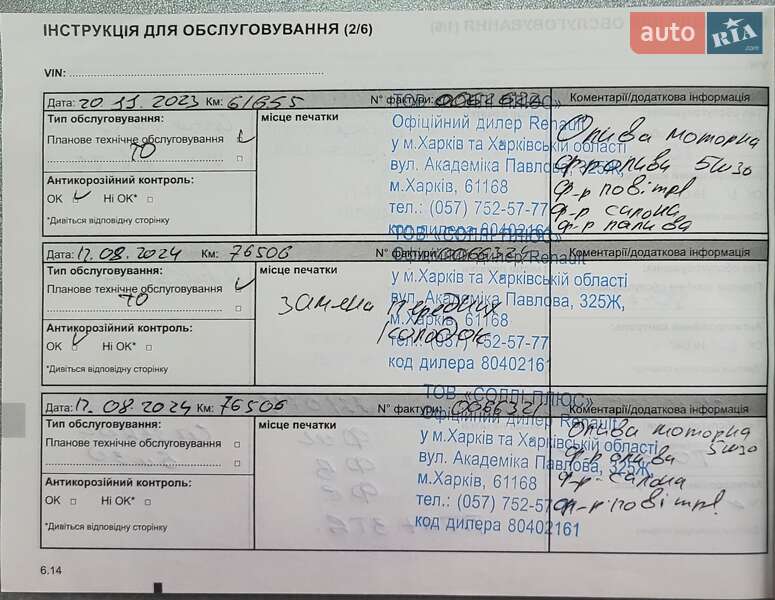 ІНСТРУКЦІЯ ДЛЯ ОБСЛУГОВУВАННЯ (2/6)
auto RIA .com
VIN:
Дата: 20 11. 2023 Км: 61655 N° фактури:
Коментарії/додаткова інформація
Тип обслуговування:
Планове технічне обслуговування
ТО
Антикорозійний контроль:
ОК Ні ОК*
*Дивіться відповідну сторінку
місце печатки
ТОВ «СОЛЛІ-ПЛЮС»
Офіційний дилер Renault
у м.Харків та Харківській області
вул. Академіка Павлова, 325Ж,
м.Харків, 61168
тел.: (057) 752-57-77
код дилера 80402161
Олива моторна
ф-р олива 5w30
ф-р повітря
ф-р салона
ф-р палива
Дата: 12. 08. 2024 Км: 76506 N° фактури: 0066321
Коментарії/додаткова інформація
Тип обслуговування:
Планове технічне обслуговування
ТО
Антикорозійний контроль:
ОК Ні ОК*
*Дивіться відповідну сторінку
місце печатки
ТОВ «СОЛЛІ-ПЛЮС»
Офіційний дилер Renault
у м.Харків та Харківській області
вул. Академіка Павлова, 325Ж,
м.Харків, 61168
тел.: (057) 752-57-77
код дилера 80402161
заміна передніх
колодок
Дата: 12. 08. 2024 Км: 76506 N° фактури: 0066321
Коментарії/додаткова інформація
Тип обслуговування:
Планове технічне обслуговування
Антикорозійний контроль:
ОК Ні ОК*
*Дивіться відповідну сторінку
місце печатки
ТОВ «СОЛЛІ-ПЛЮС»
Офіційний дилер Renault
у м.Харків та Харківській області
вул. Академіка Павлова, 325Ж,
м.Харків, 61168
тел.: (057) 752-57
код дилера 80402161
Олива моторна
ф-р олива 5w30
ф-р салона
ф-р повітря
6.14